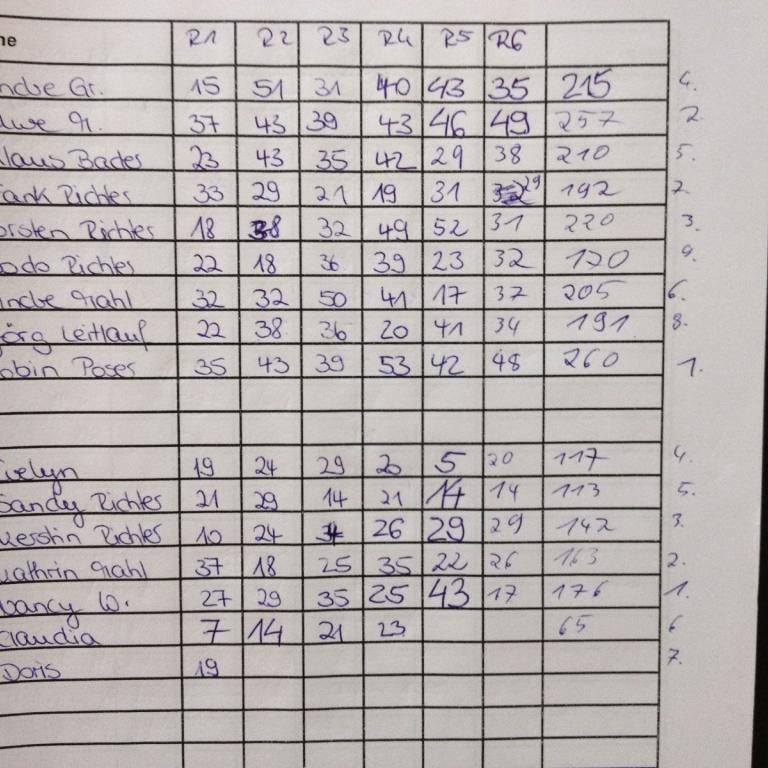 ne R1 R2 R3 R4 R5 R6
ncbe Gr. 15 51 31 40 43 35 215 4.
uwe G. 37 43 39 43 46 49 257 2
laus Bades 23 43 35 42 29 38 210 5.
ank Richles 33 29 21 19 31 29 192 7.
orsten Richles 18 38 32 49 52 31 220 3.
odo Richles 22 18 36 39 23 32 170 9.
ncbe Grahl 32 32 50 41 17 37 205 6.
örg Leitlauf 22 38 36 20 41 34 191 8.
obin Poses 35 43 39 53 42 48 260 1.
velyn 19 24 29 20 5 20 117 4.
Sandy Richles 21 29 14 21 14 14 113 5.
Kerstin Richles 10 24 26 29 29 142 3.
Kathrin Grahl 37 18 25 35 22 26 163 2.
Nancy W. 27 29 35 25 43 17 176 1.
Claudia 7 14 21 23 65 6
Doris 19 7.